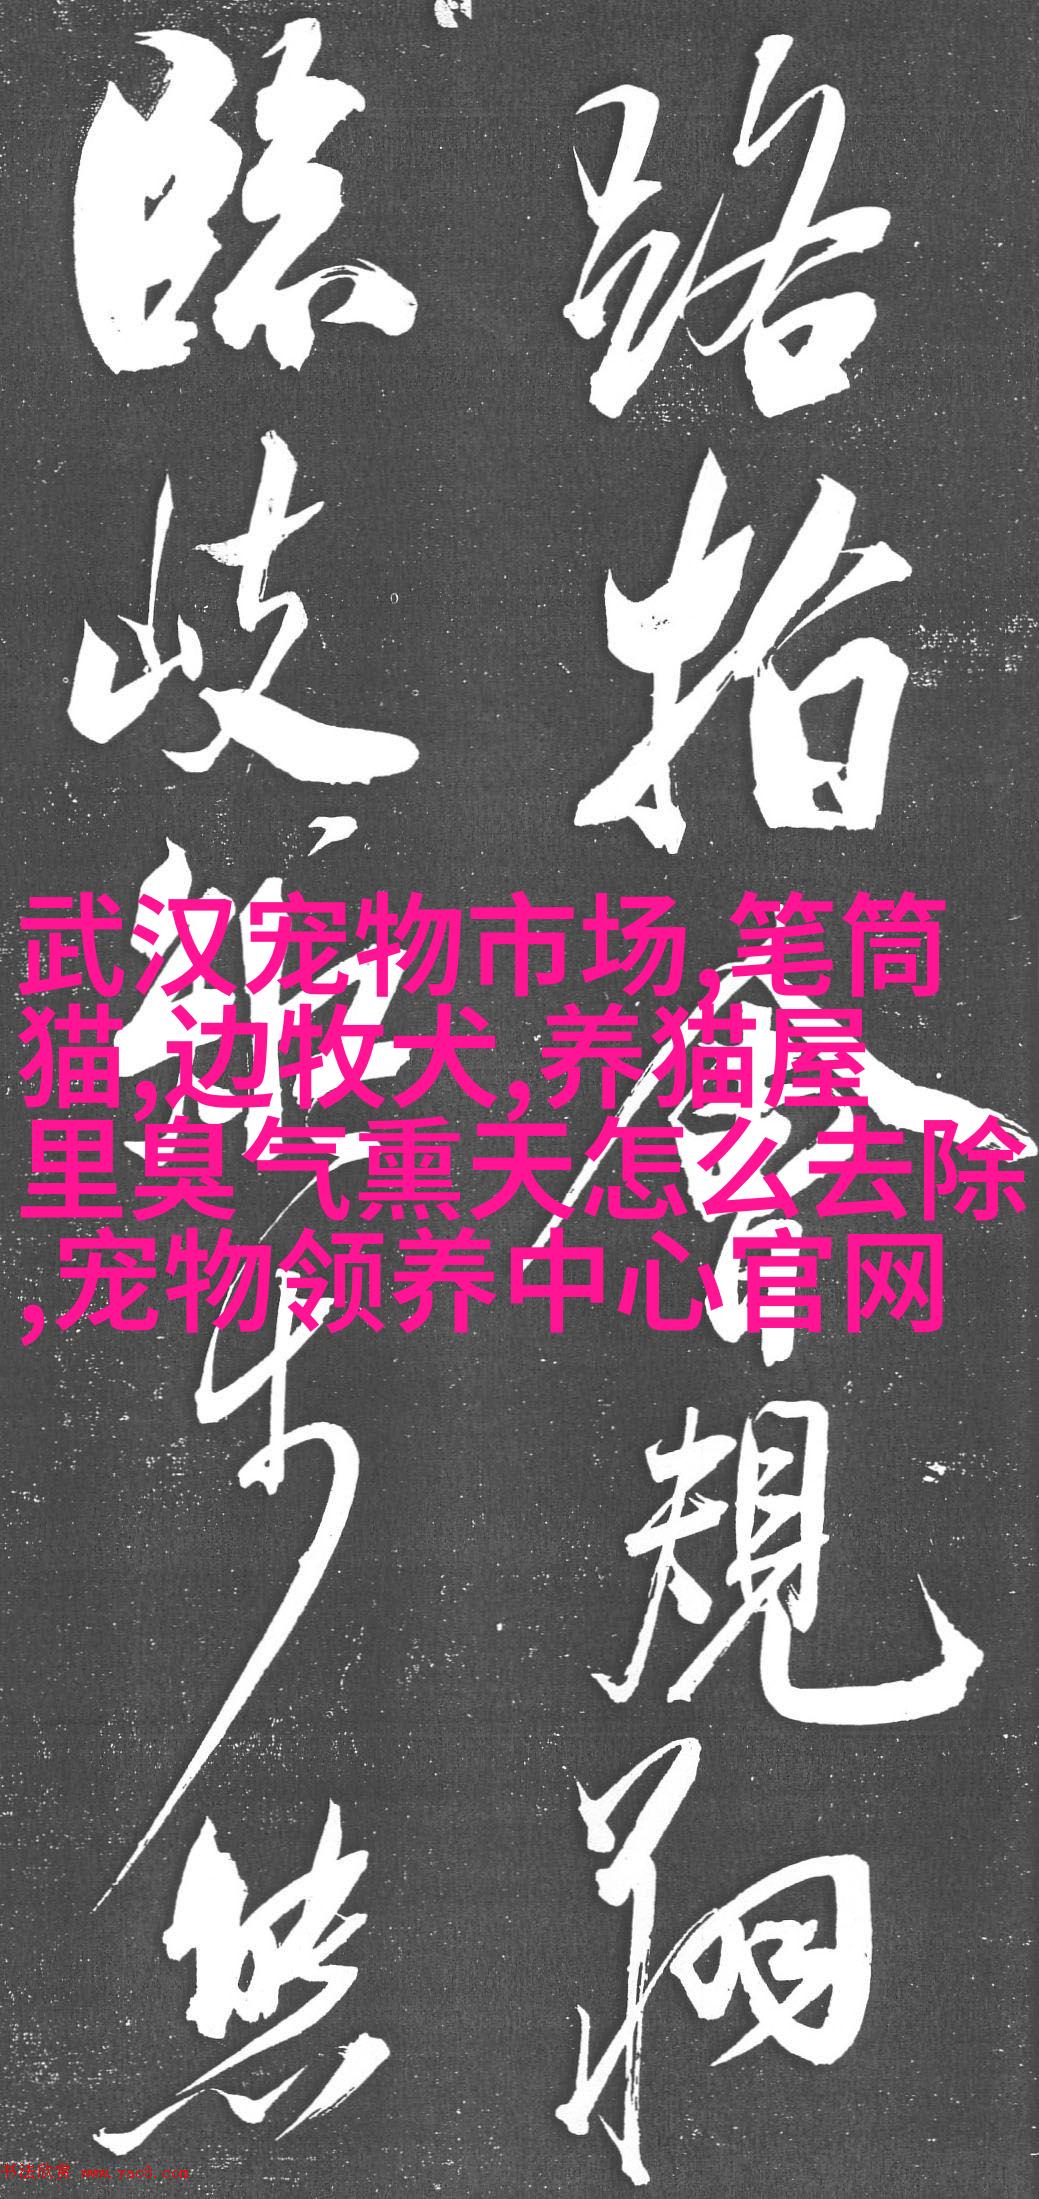 路指會規
臨岐步
武汉宠物市场,笔筒
猫,边牧犬,养猫屋
里臭气熏天怎么去除
,宠物领养中心官网
书法欣赏 www.yac8.com